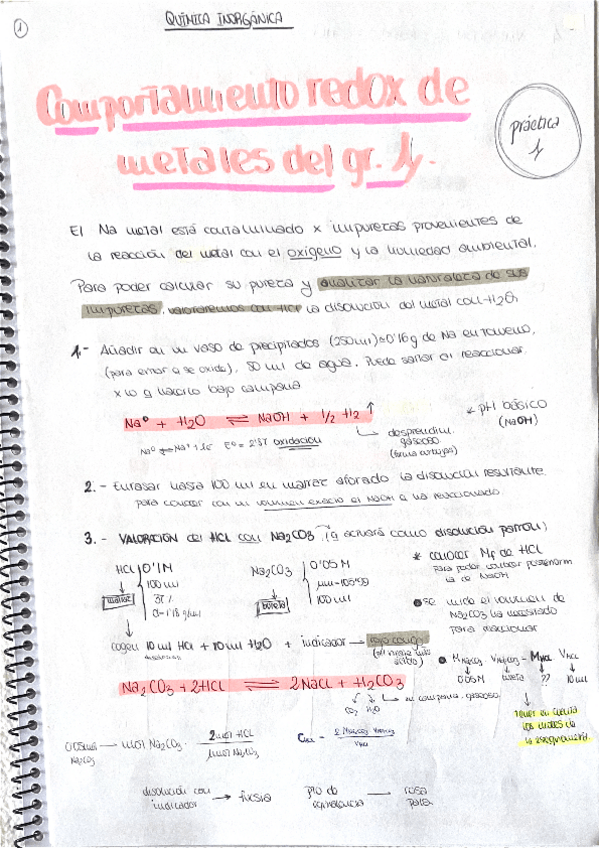 1
QUÍMICA INORGÁNICA
Comportamiento redox de
metales del gr. 1.
práctica
1
El Na metal está contaminado x impurezas provenientes de
la reacción del metal con el oxígeno y la humedad ambiental.
Para poder calcular su pureza y analizar la naturaleza de sus
impurezas, valoraremos con HCl la disolución del metal con H2O
1.- Añadir en un vaso de precipitados (250ml) 0'16g de Na en tolueno,
(para evitar q se oxide), 50 ml de agua. Puede saltar al reaccionar
x lo q hacerlo bajo campana
Na° + H2O ⇌ NaOH + 1/2 H2 ↑
* pH básico
(NaOH)
desprendim.
gaseoso
(forma burbujas)
oxidación
2. - Enrasar hasta 100 ml en matraz aforado la disolución resultante
para conocer con un volumen exacto el NaOH q ha reaccionado.
3. - VALORACIÓN del HCl con Na2CO3 (q actuará como disolución patrón)
HCl 0'1M
100 ml
37 %
matraz
Na2CO3 0'05M
100 ml
bureta
* conocer Mf de HCl
para poder valorar
la de NaOH
se mide el volumen de
Na2CO3 ha necesitado
para reaccionar
cogeu 10 ml HCl + 10 ml H2O + indicador → rojo congo
Na2CO3 + 2HCl ⇌ 2NaCl + H2CO3
0.05M bureta ?? 10 ml
CO2 H2O
Tener en cuenta
los moles de
la estequiometría
mol Na2CO3 · 2 mol HCl
1 mol Na2CO3
disolución con
indicador → fucsia
pto de
equivalencia → rosa